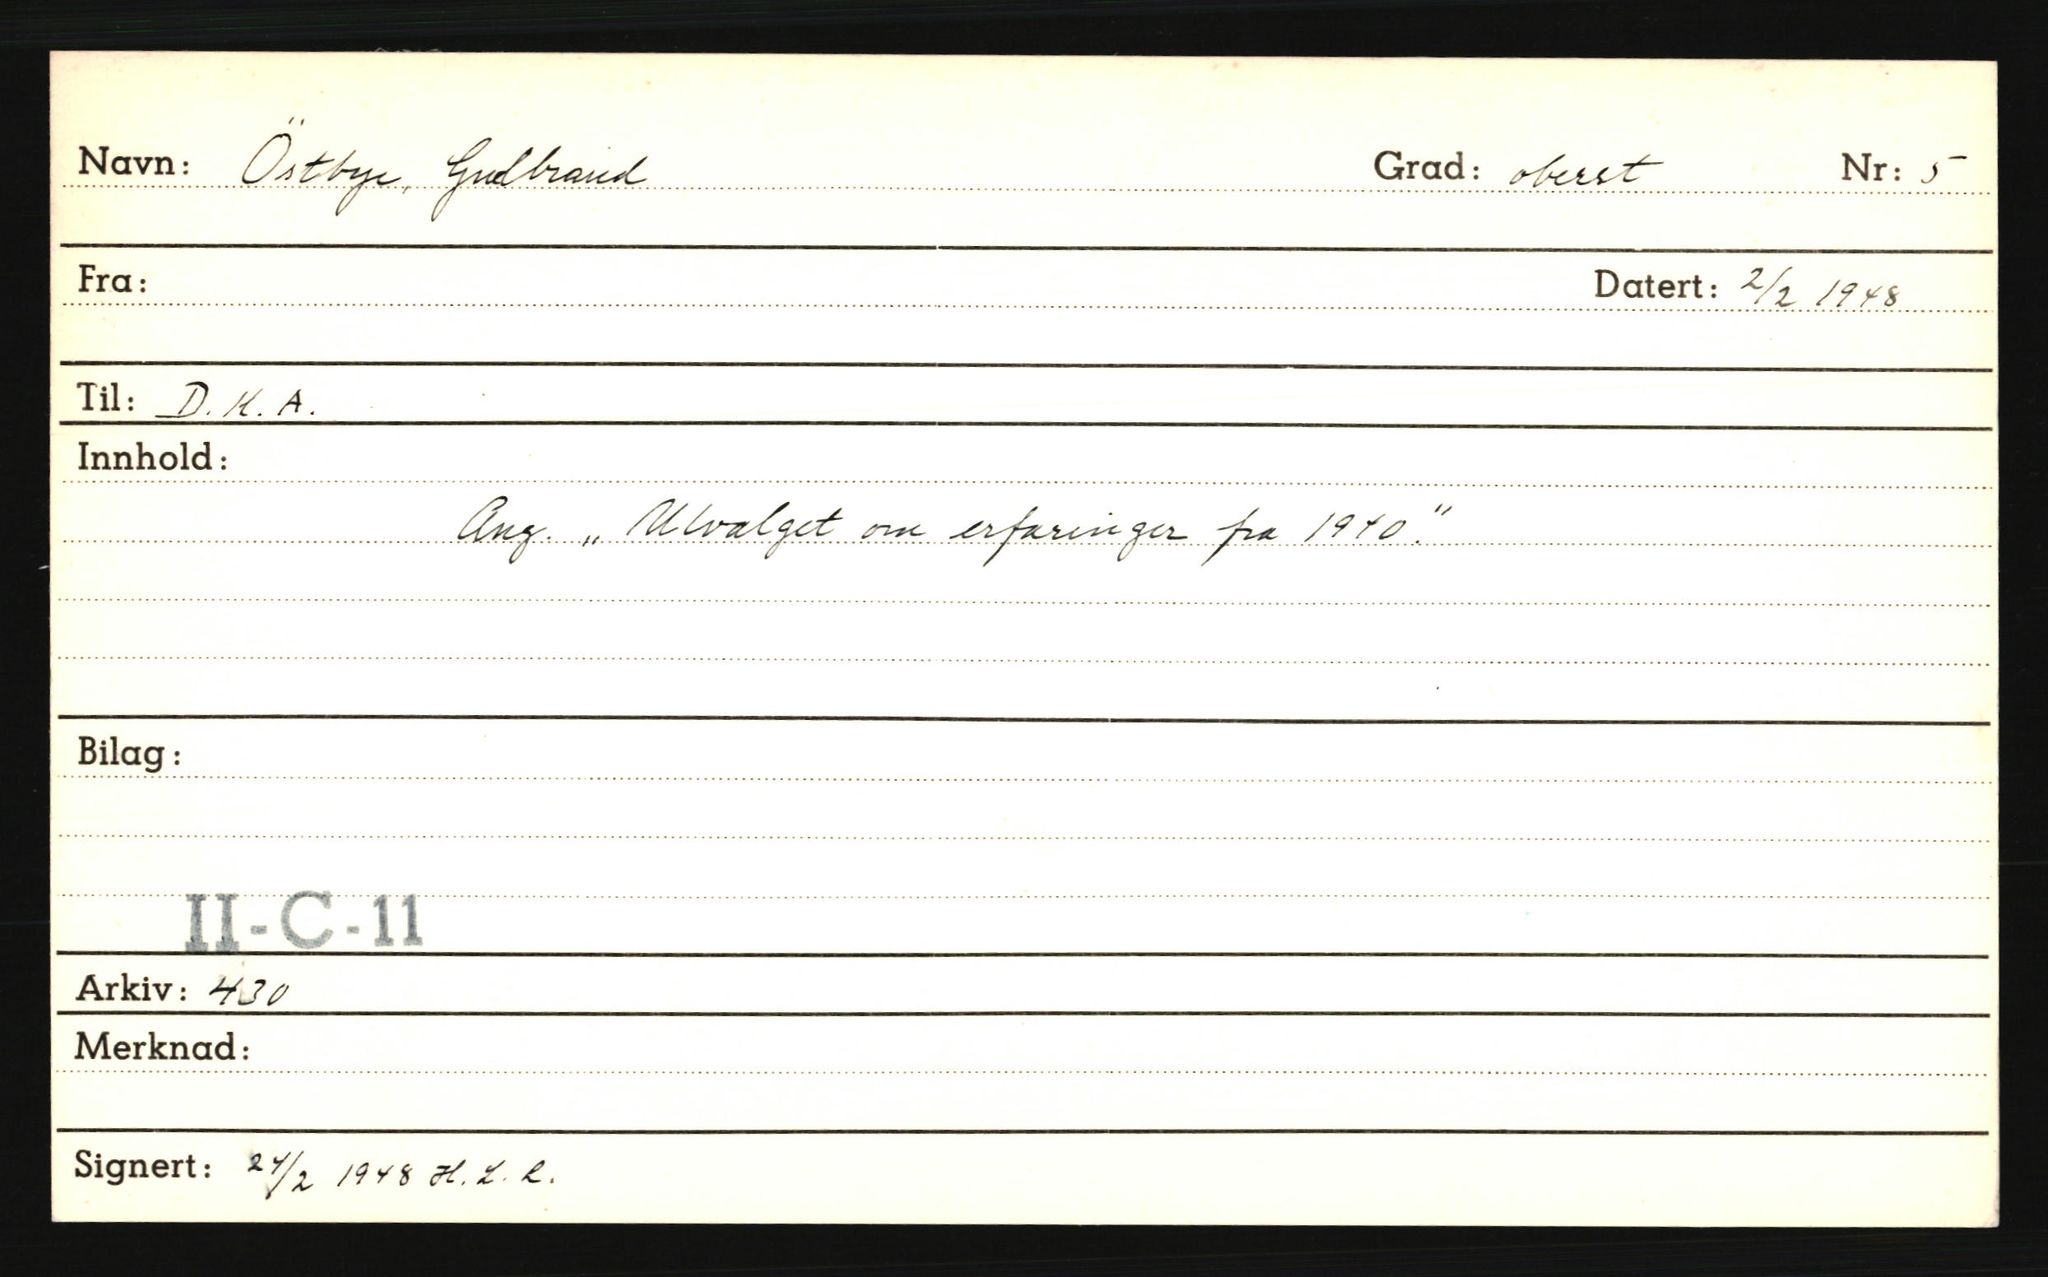 Navn: Östbye, Gudbrand Grad: oberst Nr: 5
Fra: Datert: 2/2 1948
Til: D.K.A.
Innhold:
Ang. „Utvalget om erfaringer fra 1940."
Bilag:
II-C-11
Arkiv: 430
Merknad:
Signert: 24/2 1948 H.L.L.